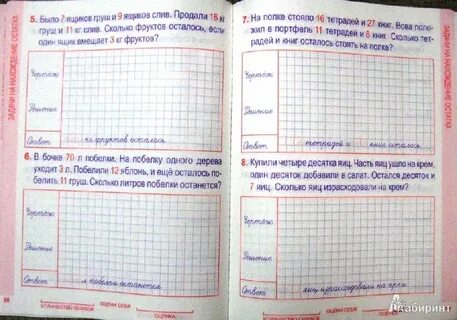 ЗАДАЧИ НА НАХОЖДЕНИЕ ОСТАТКА
5. Было 7 ящиков груш и 9 ящиков слив. Продали 18 кг
груш и 11 кг слив. Сколько фруктов осталось, если
один ящик вмещает 3 кг фруктов?
Чертёж
Решение
Ответ
кг фруктов осталось.
6. В бочке 70 л побелки. На побелку одного дерева
уходит 3 л. Побелили 12 яблонь, и ещё осталось по-
белить 11 груш. Сколько литров побелки останется?
Чертёж
Решение
Ответ
л побелки останется
КОЛИЧЕСТВО ОШИБОК
ОЦЕНИ СЕБЯ
ОЦЕНКА
7. На полке стояло 16 тетрадей и 27 книг. Вова поло-
жил в портфель 11 тетрадей и 8 книг. Сколько тет-
радей и книг осталось стоять на полке?
Чертёж
Решение
Ответ
тетрадей и книг осталось.
8. Купили четыре десятка яиц. Часть яиц ушло на крем,
один десяток добавили в салат. Остался десяток и
7 яиц. Сколько яиц израсходовали на крем?
Чертёж
Решение
Ответ
яиц израсходовали на крем.
КОЛИЧЕСТВО ОШИБОК
ОЦЕНИ СЕБЯ
ОЦЕНКА
ЗАДАЧИ НА НАХОЖДЕНИЕ ОСТАТКА
Лабиринт